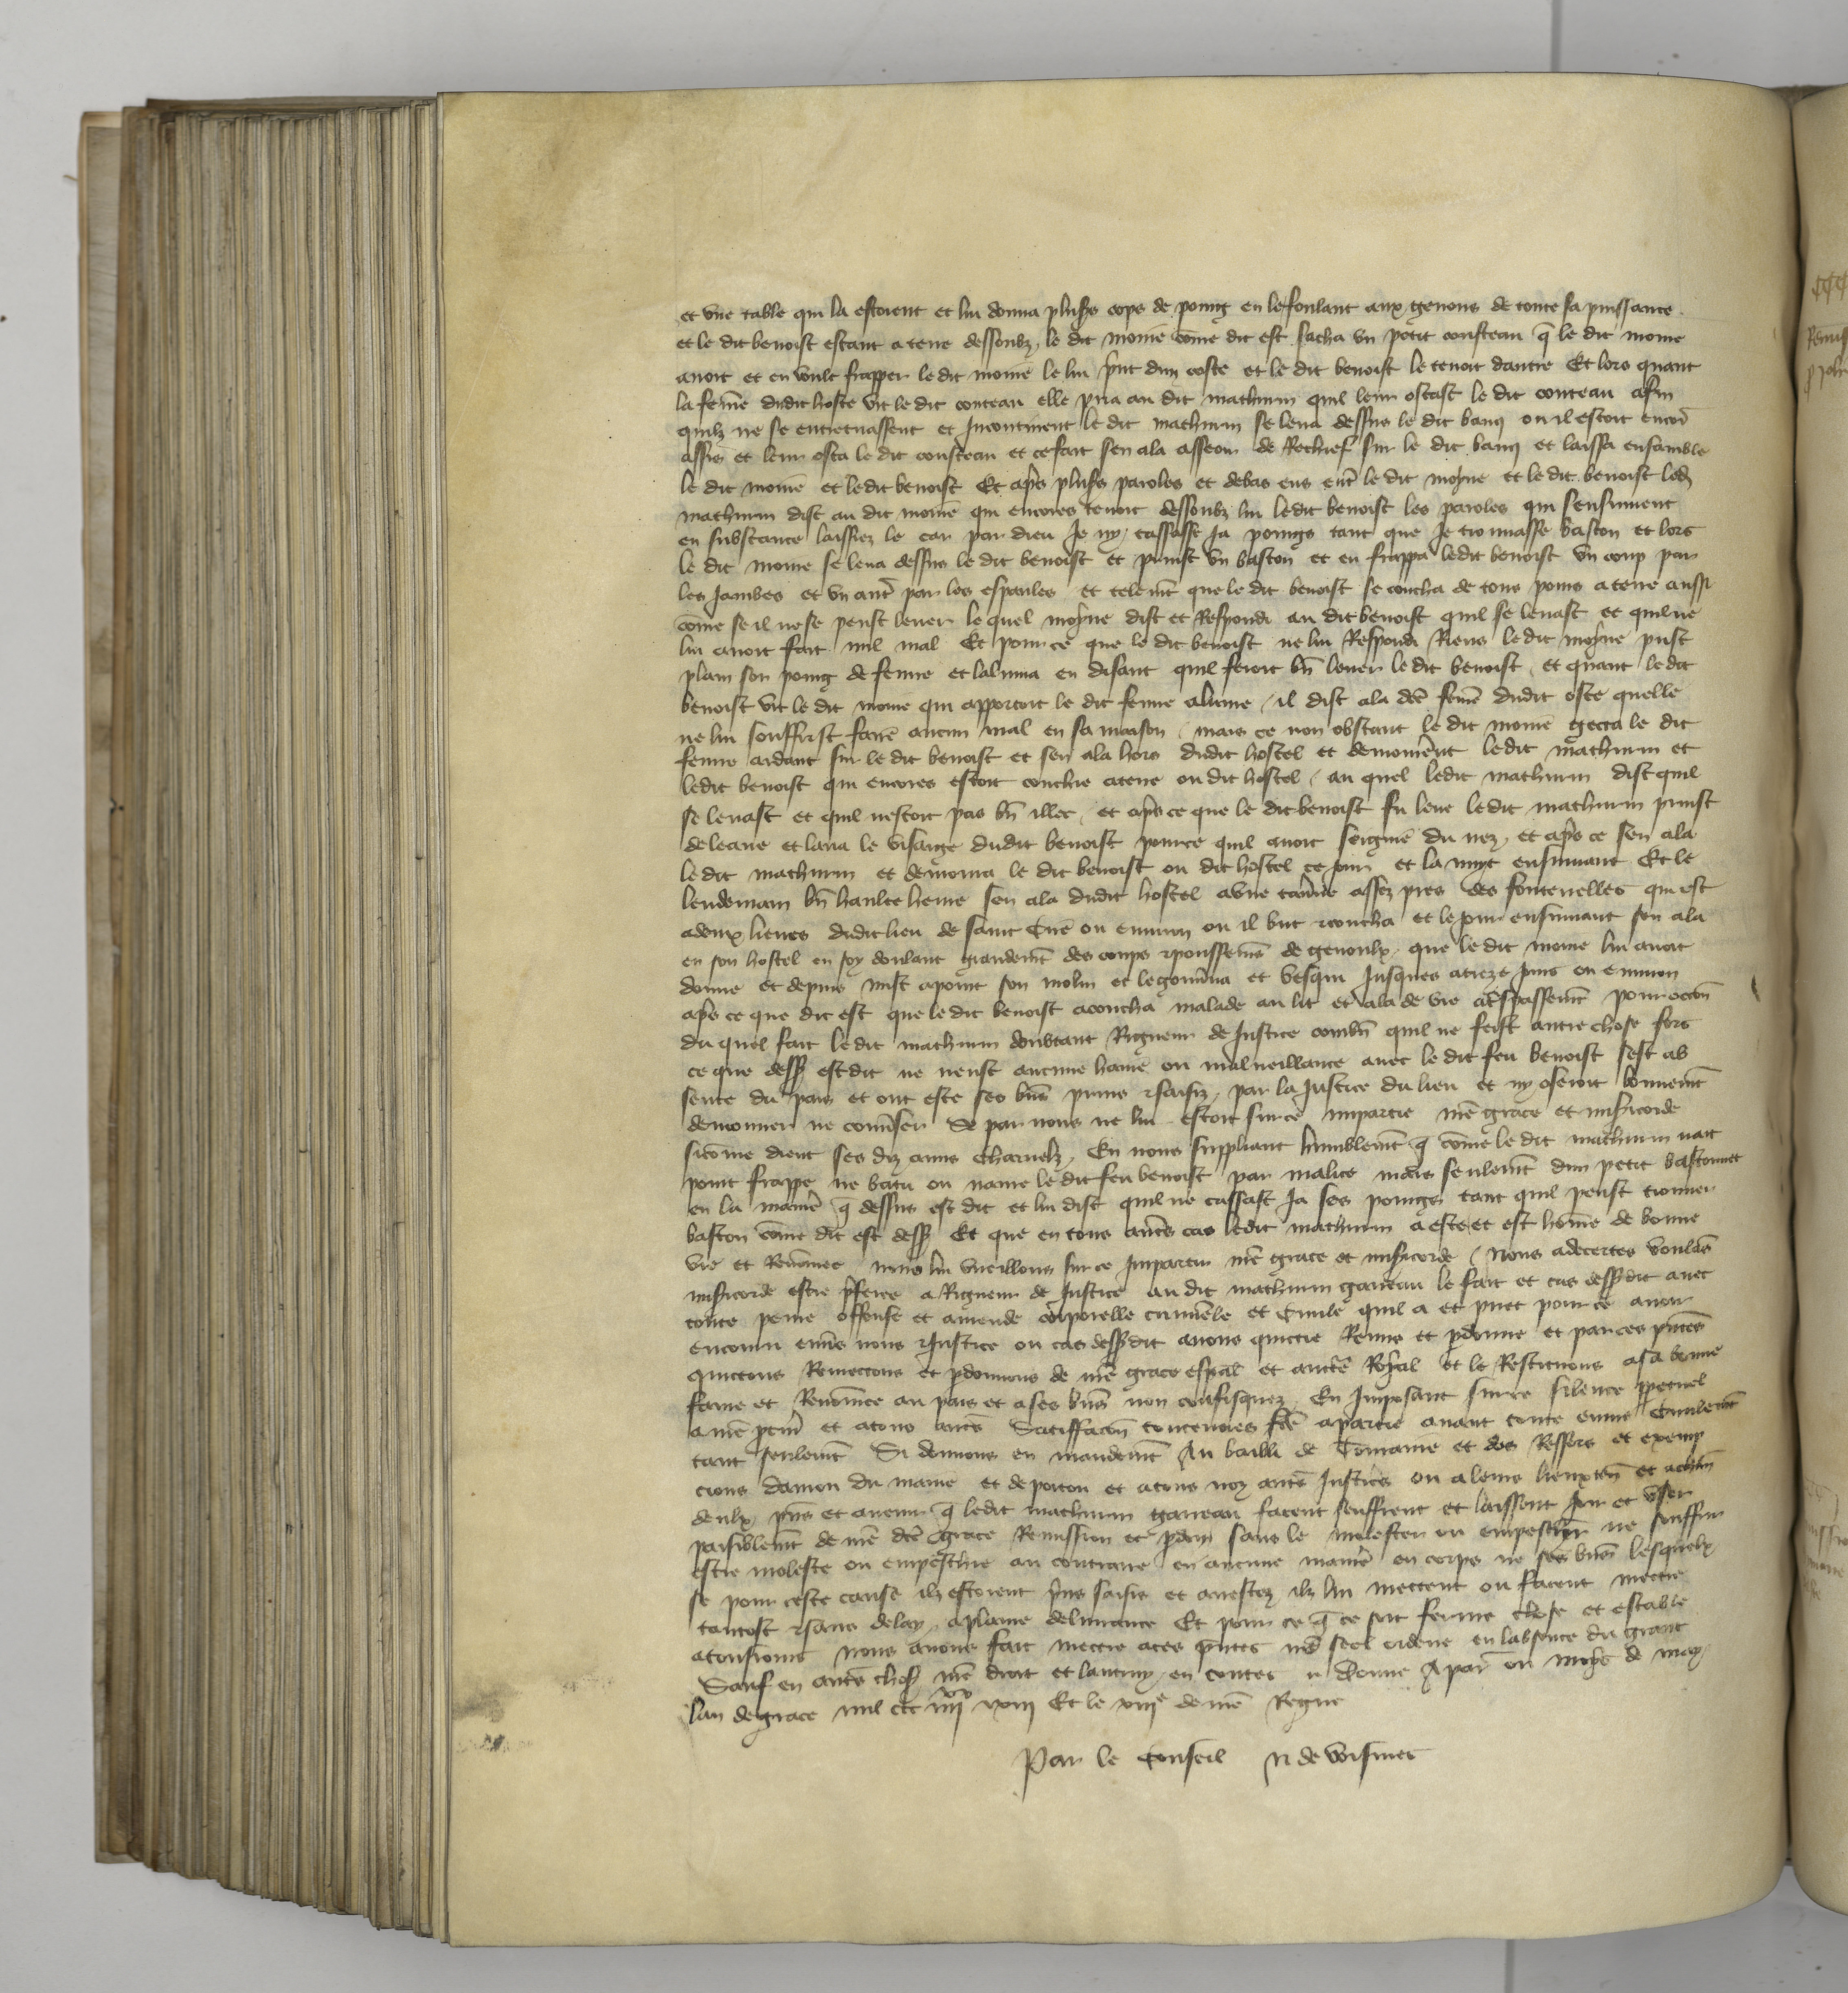 et une table qui la estoient et lui donna plus̉s cops de poing en le foulant aux genous de toute sa puissance
et le dit benoist estant a terre dessoubz le dit moine cōme dit est sacha un petit cousteau q̄ le dit moine
avoit et en voult frapper le dit moine le lui p̉nt dun coste et le dit benoist le tenoit dautre Et lors quant
la fem̄e dudit hoste vit le dit couteau elle pria au dit mathurin quil leur ostast le dit couteau afin
quilz ne se entretuassent et Incontinent le dit mathurin se leva dessus le dit banc ou il estoit encor̉
assis et leur osta le dit cousteau et ce fait sen ala asseoir de Rechief sur le dit banc et laissa ensamble
le dit moine et ledit benoist Et ap̉s plus̉s paroles et debas eus ent̉ le dit moyne et le dit benoist led
mathurin dist au dit moine qui encores tenoit dessoubz lui ledit benoist les paroles qui sensuivent
en substance laissiez le car par dieu Je ny cassasse Ja poings tant que Je trouvasse baston et lors
le dit moine se leva dessus le dit benoist et printst un baston et en frappa ledit benoist un coup par
les Jambes et un aut̉ par les espaules et telem̄t que le dit benoist se coucha de tous poins a terre aussi
cōme se il ne se peust lever le quel moyne dist et Respondi au dit benoist quil se levast et quil ne
lui avoit fait nul mal Et pour ce que le dit benoist ne lui Respondi Riens le dit moyne p̉ist
plain son poing de feurre et laluma en disant quil feroit bn̄ lever le dit benoist et quant le dit
benoist vit le dit moine qui apportoit le dit feurre alume il dist ala dc̄e fem̄e dudit oste quelle
ne lui souffrist faire aucun mal en sa maison mais ce non obstant le dit moine getta le dit
feurre ardant sur le dit benoist et sen ala hors dudit hostel et demour̉ent ledit mathurin et
ledit benoist qui encores estoit couchie a terre ou dit hostel au quel ledit mathurin dist quil
se levast et quil nestoit pas bn̄ illec et ap̉s ce que le dit benoist fu leve ledit mathurin prinst
de leaue et lava le visaige dudit benoist pource quil avoit seignie du nez et ap̉s ce sen ala
le dit mathurin et demoura le dit benoist ou dit hostel ce jour et la nuyt ensuivant Et le
lendemain bn̄ haulte heure sen ala dudit hostel a une taverne assez pres des fontenelles qui est
a deux lieues dudit lieu de saint ou environ ou il but et coucha et le jour ensuivant sen ala
en son hostel en soy doulant grandem̄t des coups et poussem̄s de genoulx que le dit moine lui avoit
donne et depuis mist a point son molin et le gouv̉na et vesqui Jusques a treze jours ou environ
ap̉s ce que dit est que le dit benoist acoucha malade au lit et ala de vie a t̉spassem̄t pour occon̄
du quel fait le dit mathurin doubtant Rigueur de Justice combn̄ quil ne feist autre chose fors
ce que dess̉ est dit ne neust aucune haine ou malveillance avec le dit feu benoist sest ab
sente du pais et ont este ses bn̄s prins et saisiz par la Justice du lieu et ny oseroit bonnem̄t
demourer ne conv̉ser Se par nous ne lui estoit sur ce impartie nr̄e grace et mis̉icorde
sicōme dient ses diz amis charnelz En nous suppliant humblem̄t q̄ cōme le dit mathurin nait
point frappe ne batu ou navre le dit feu benoist par malice mais seulem̄t dun petit bastonnet
en la manier̉ q̄ dessus est dit et lui dist quil ne cassast Ja ses poings tant quil peust trouver
baston cōme dit est dess̉ Et que en tous aut̉s cas ledit mathurin a este et est hōme de bonne
vie et Renōmee nous lui vueillons sur ce Impartir nr̄e grace et mis̉icorde Nous adecertes voulās
mis̉icorde estre p̉feree a Rigueur de Justice au dit mathurin garreau le fait et cas dess̉dit avec
toute peine offense et amende corporelle criminele et Civile quil a et puet pour ce avoir
encouru env̉s nous et Justice ou cas dess̉dit avons quictie Remis et p̄donne et par ces p̉ntes
quictons Remettons et p̄donnons de nr̄e grace esp̄al et auct̄e Royal et le Restituons a sa bonne
fame et Renōmee au pais et a ses bn̄s non confisquez En Imposant sur ce silence p̄petuel
a nr̄e p̄cur̉ et a tous aut̉s Satiffacon̄ toutevoies fc̄e a partie avant toute euvre Civilem̄t
tant seulem̄t Si donnons en mandem̄t Au bailli de Touraine et des Ressors et exemp
cions danjou du maine et de poitou et a tous noz aut̉s Justic̉s ou a leurs lieuxten̄ et a chūn
deulx p̉ns et avenir q̄ ledit mathurin garreau facent seuffrent et laissent Joir et user
paisiblem̄t de nr̄e dc̄e grace Remission et p̄don sans le molester ou empeschier ne souffrir
estre moleste ou empeschie au contraire en aucune manier̉ en corps ne ses bn̄s lesquelx
se pour ceste cause ilz estoient p̉ns saisis et arrestez ilz lui mettent ou facent mettre
tantost et sans delay a plaine delivrance Et pour ce q̄ ce soit ferme chose et estable
a tousjours nous avons fait mettre a ces p̉ntes nr̄e seel ordene en labsence du grant
Sauf en aut̉s chos̉ nr̄e droit et lautruy en toutes Donne A par̉ ou moys de may
lan de grace mil ccc iiii xx xiii Et le xiiie de nr̄e Regne
Par le Conseil N de voisines